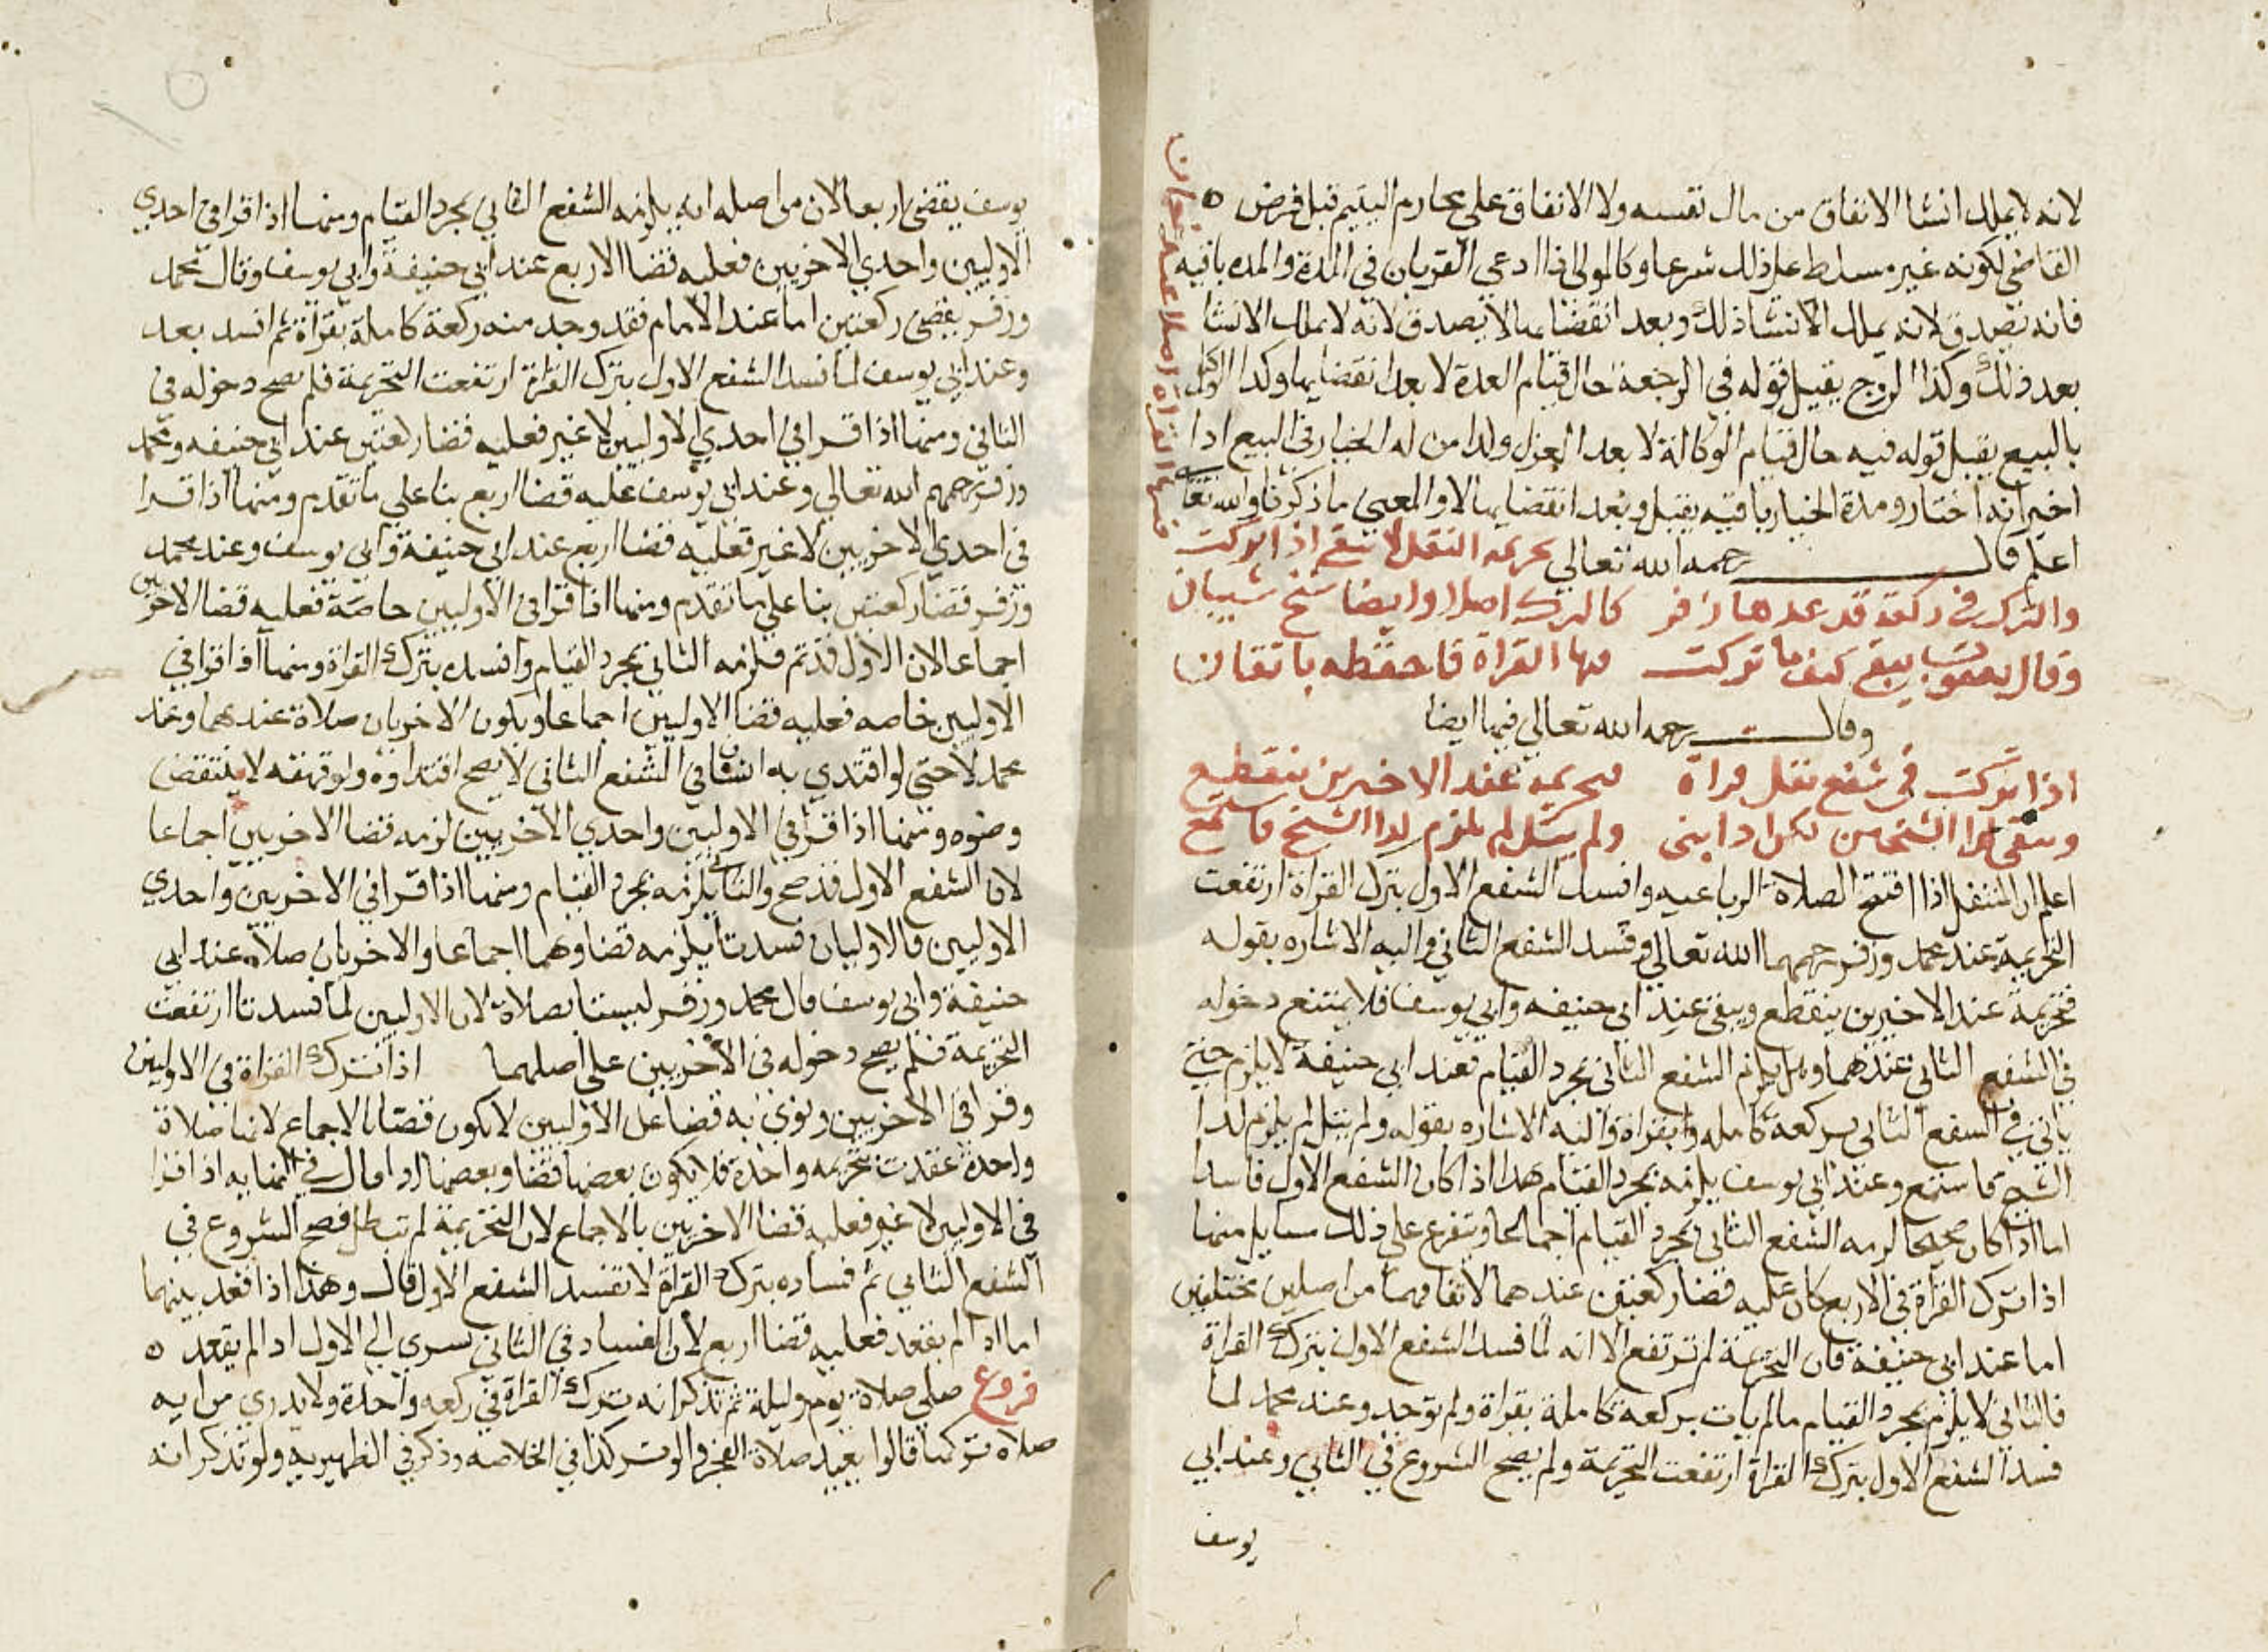 لانه لا يملك انشا الانفاق من مال نفسه ولا الانفاق علي محارم اليتيم قبل فرض ه
القاضي لكونه غير مسلط علي ذلك شرعا وكالمولي اذا ادعي القربان في المدة والمده باقيه
فانه يصدق لانه يملك الانشا ذلك وبعد انقضايها لا يصدق لانه لا يملك الانشا
بعد ذلك وكذا الزوج يقبل قوله في الرجعة حال قيام العدة لا بعد انقضايها وكدا الوكيل
بالبيع يقبل قوله فيه حال قيام الوكالة لا بعد العزل ولدا من له الخيار في البيع ادا
اخبر انه اختار ومدة الخيار باقيه يقبل وبعد انقضايها لا والمعني ما ذكرنا والله تعالي
اعلم قال رحمه الله تعالي تحريمة النفل لا تبقي اذا تركت
فيها القراة اصلا عند
والترك في ركعة قد عدها زفر كالترك اصلا وايضا شيخ شيبان
وقال يعقوب يبقي كيف ما تركت فيها القراة فاحفظه باتقان
وقال رحمه الله تعالي فيها ايضا
اذا تركت في شفع نفل قراة فتحريمة عند الاخيرين تنقطع
وتبقي لدا الشيخين لكن اذا بني ولم يتل لم يلزم لدا الشيخ فاستمع
اعلم ان المتنفل اذا افتتح الصلاة الرباعيه وافسد الشفع الاول بترك القراة ارتفعت
التحريمة عند محمد وزفر رحمهما الله تعالي وفسد الشفع الثاني واليه الاشاره بقوله
فتحريمة عند الاخيرين ينقطع ويبقي عند ابي حنيفه وابي يوسف فلا يمتنع دخوله
في الشفع الثاني عندهما وهل يلزم الشفع الثاني بمجرد القيام فعند ابي حنيفة لا يلزم حتي
ياتي في الشفع الثاني بركعة كامله وبقراة واليه الاشاره بقوله ولم يتل لم يلزم لدا
الشيخ فاستمع وعند ابي يوسف يلزمه بمجرد القيام هدا اذا كان الشفع الاول فاسدا
اما اذا كان صحيحا لزمه الشفع الثاني بمجرد القيام اجماعا ويتفرع علي ذلك مسايل منها
اذا ترك القراة في الاربع كان عليه قضا ركعتين عندهما لاتفاقهما من اصلين مختلفين
اما عند ابي حنيفة فان التحريمة لم ترتفع الا انه لما فسد الشفع الاول بترك القراة
فالثاني لا يلزم بمجرد القيام مالم يات بركعة كاملة بقراة ولم توجد وعند محمد لما
فسد الشفع الاول بترك القراة ارتفعت التحريمة ولم يصح الشروع في الثاني وعند ابي
يوسف
يوسف يقضي اربعا لان من اصله انه يلزمه الشفع الثاني بمجرد القيام ومنها اذا قرا في احدي
الاوليين واحدي الاخريين فعليه قضا الاربع عند ابي حنيفة وابي يوسف وقال محمد
وزفر يقضي ركعتين اما عند الامام فقد وجد منه ركعة كاملة بقراة ثم افسد بعد
وعند ابي يوسف لما فسد الشفع الاول بترك القراة ارتفعت التحريمة فلم يصح دخوله في
الثاني ومنها اذا قرا في احدي الاوليين لا غير فعليه قضا ركعتين عند ابي حنيفه ومحمد
وزفر رحمهم الله تعالي وعند ابي يوسف عليه قضا اربع بنا علي ما تقدم ومنها اذا قرا
في احدي الاخريين لا غير فعليه قضا اربع عند ابي حنيفة وابي يوسف وعند محمد
وزفر قضا ركعتين بنا علي ما تقدم ومنها اذا قرا في الاوليين خاصة فعليه قضا الاخريين
اجماعا لان الاول قد تم فلزمه الثاني بمجرد القيام وافسده بترك القراة ومنها اذا قرا في
الاوليين خاصه فعليه قضا الاوليين اجماعا ويكون الاخريان صلاة عندهما وعند
محمد لا حتي لو اقتدي به انسان في الشفع الثاني لا يصح اقتداوه ولو قهقه لا ينتقض
وضوه ومنها اذا قرا في الاوليين واحدي الاخريين لزمه قضا الاخريين اجماعا
لان الشفع الاول قد صح والثاني يلزمه بمجرد القيام ومنها اذا قرا في الاخريين واحدي
الاوليين فالاوليان فسدتا يلزمه قضاوهما اجماعا والاخريان صلاة عند ابي
حنيفة وابي يوسف قال محمد وزفر ليستا بصلاة لان الاوليين لما فسدتا ارتفعت
التحريمة فلم يصح دخوله في الاخريين علي اصلهما اذا ترك القراة في الاوليين
وقرا في الاخريين ونوي به قضا عن الاوليين لا يكون قضا بالاجماع لانها صلاة
واحدة عقدت بتحريمه واحدة فلا يكون بعضها قضا وبعضها ادا قال في النهايه اذا قرا
في الاوليين لا غير فعليه قضا الاخريين بالاجماع لان التحريمة لم تبطل فصح الشروع في
الشفع الثاني ثم فساده بترك القراة لا تفسد الشفع الاول قال وهذا اذا قعد بينهما
اما اذا لم يقعد فعليه قضا اربع لان الفساد في الثاني يسري الي الاول اذا لم يقعد ه
فروع صلي صلاة يوم وليلة ثم تذكر انه ترك القراة في ركعه واحدة ولا يدري من ايه
صلاه تركها قالوا يعيد صلاة الفجر والوتر كذا في الخلاصه وذكر في الظهيريه ولو تذكر انه